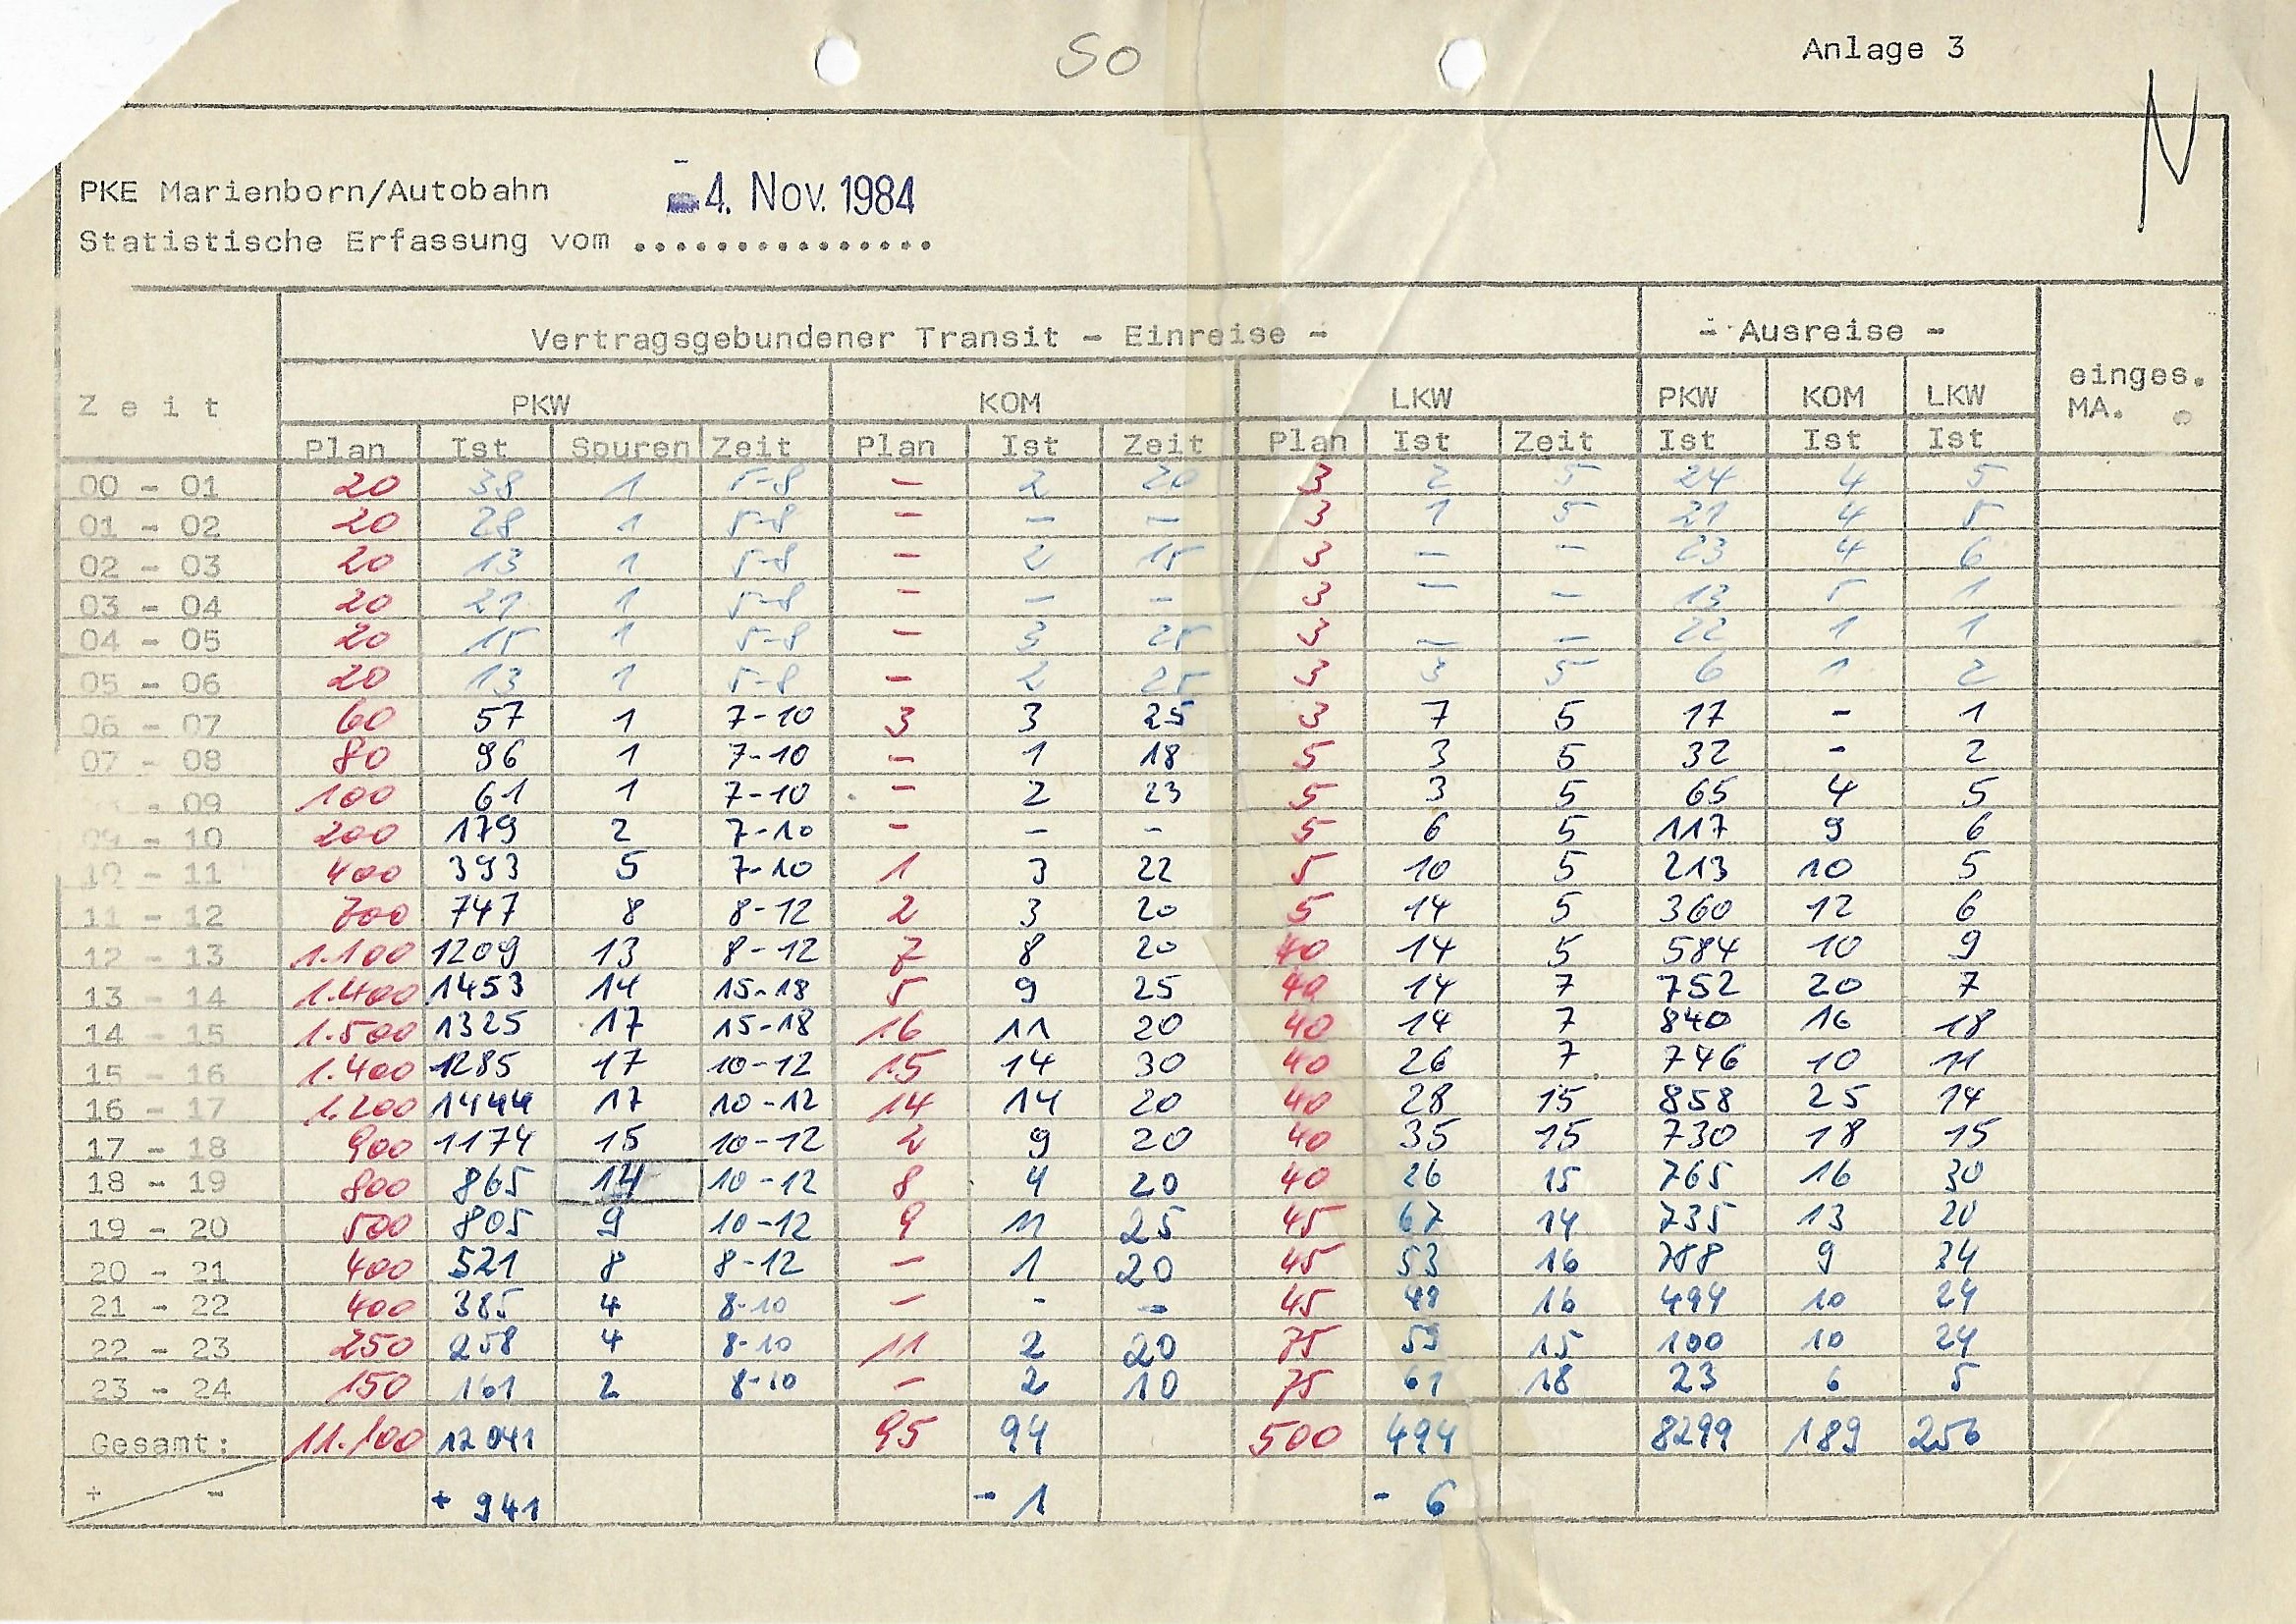 So
Anlage 3
N
PKE Marienborn/Autobahn -4. Nov. 1984
Statistische Erfassung vom ...............
Vertragsgebundener Transit - Einreise - - Ausreise -
Zeit PKW KOM LKW PKW KOM LKW einges. MA.
Plan Ist Spuren Zeit Plan Ist Zeit Plan Ist Zeit Ist Ist Ist
00 - 01 20 38 1 5-8 - 2 20 3 2 5 24 4 5
01 - 02 20 28 1 5-8 - - - 3 1 5 21 4 5
02 - 03 20 13 1 5-8 - 2 15 3 - - 23 4 6
03 - 04 20 21 1 5-8 - - - 3 - - 13 5 1
04 - 05 20 15 1 5-8 - 3 25 3 - - 22 1 1
05 - 06 20 13 1 5-8 - 2 25 3 3 5 6 1 2
06 - 07 60 57 1 7-10 3 3 25 3 7 5 17 - 1
07 - 08 80 96 1 7-10 - 1 18 5 3 5 32 - 2
- 09 100 61 1 7-10 - 2 23 5 3 5 65 4 5
09 - 10 200 179 2 7-10 - - - 5 6 5 117 9 6
10 - 11 400 393 5 7-10 1 3 22 5 10 5 213 10 5
11 - 12 700 747 8 8-12 2 3 20 5 14 5 360 12 6
12 - 13 1.100 1209 13 8-12 7 8 20 40 14 5 584 10 9
13 - 14 1.400 1453 14 15-18 5 9 25 40 14 7 752 20 7
14 - 15 1.500 1325 17 15-18 16 11 20 40 14 7 840 16 18
15 - 16 1.400 1285 17 10-12 15 14 30 40 26 7 746 10 11
16 - 17 1.200 1444 17 10-12 14 14 20 40 28 15 858 25 14
17 - 18 900 1174 15 10-12 2 9 20 40 35 15 730 18 15
18 - 19 800 865 14 10-12 8 4 20 40 26 15 765 16 30
19 - 20 500 805 9 10-12 9 11 25 45 67 14 735 13 20
20 - 21 400 521 8 8-12 - 1 20 45 53 16 9 24
21 - 22 400 385 4 8-10 - - - 45 16 494 10 24
22 - 23 250 258 4 8-10 11 2 20 75 59 15 100 10 24
23 - 24 150 161 2 8-10 - 2 10 75 61 18 23 6 5
Gesamt: 11.100 12041 95 94 500 494 8299 189 256
+ - + 941 - 1 - 6